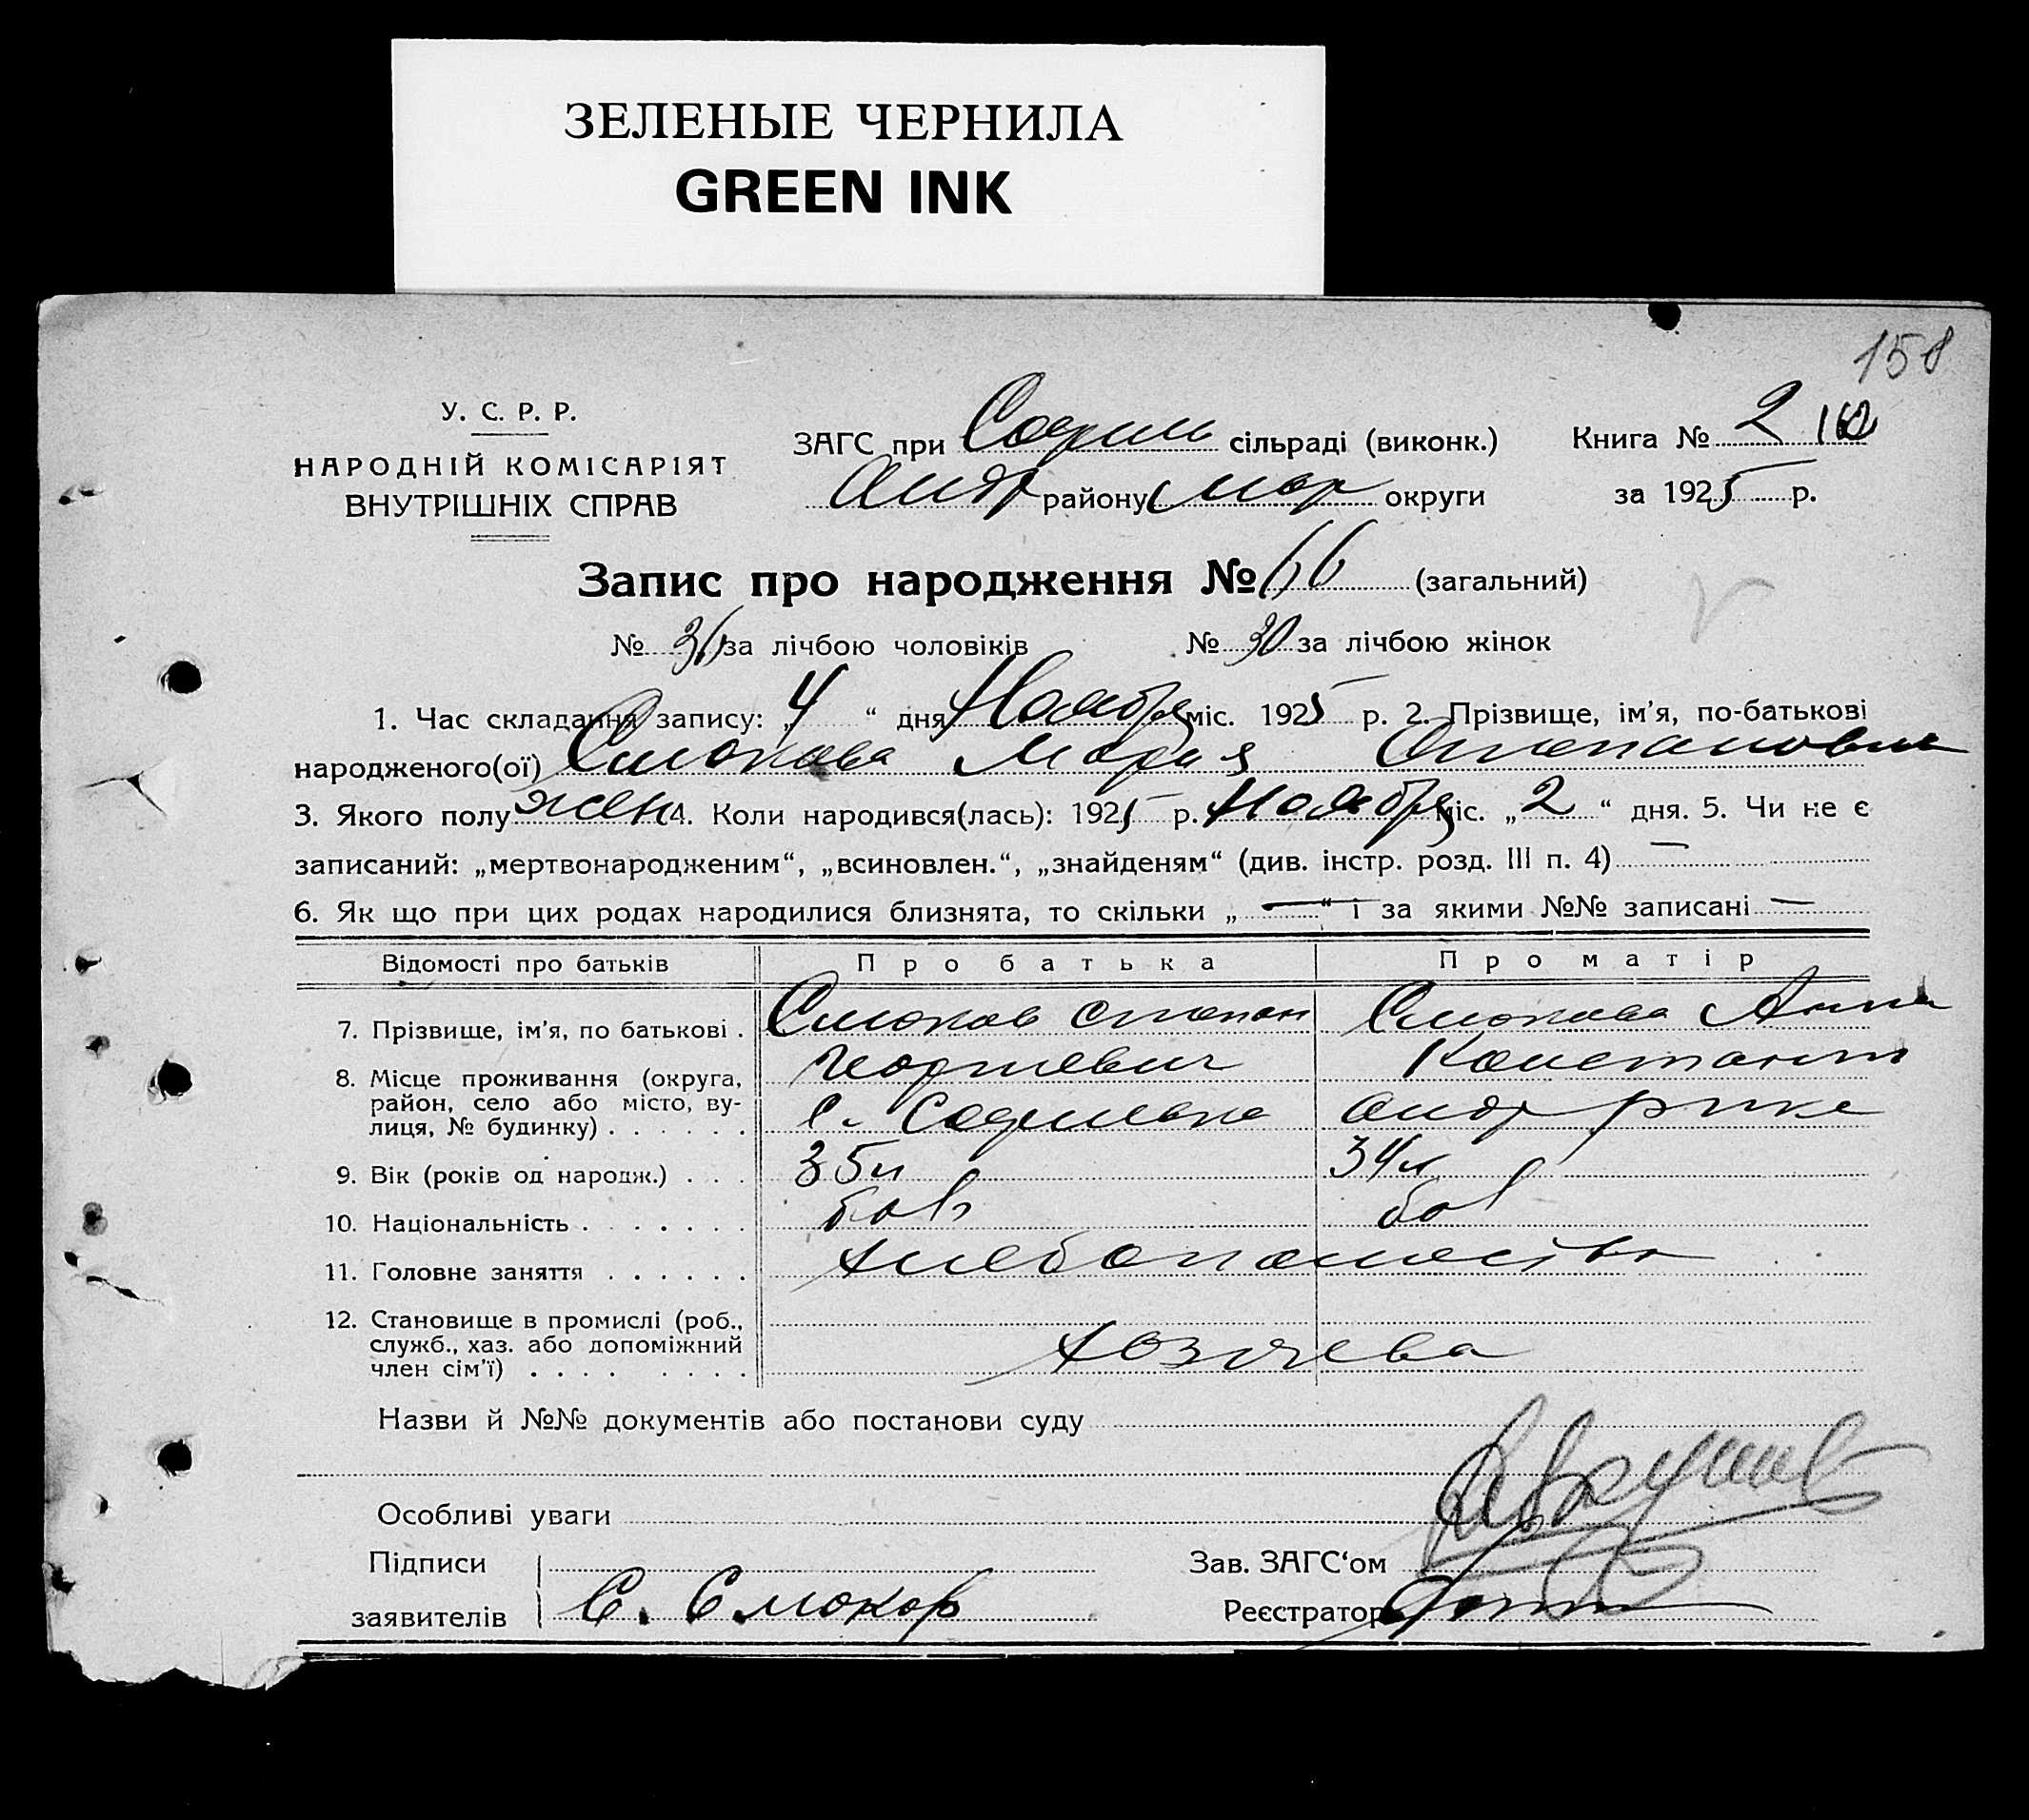 ЗЕЛЕНЫЕ ЧЕРНИЛА
GREEN INK
158
У. С. Р. Р.
НАРОДНІЙ КОМІСАРІЯТ
ВНУТРІШНІХ СПРАВ
ЗАГС при Софиев сільраді (виконк.) Книга № 2
Андр району Мар округи за 1925 р.
Запис про народження № 66 (загальний)
№ 36 за лічбою чоловіків № 30 за лічбою жінок
1. Час складання запису: „4“ дня Ноября міс. 1925 р. 2. Прізвище, ім'я, по-батькові
народженого(ої) Смокова Мария Степановна
3. Якого полу жен 4. Коли народився(лась): 1925 р. Ноября міс. „2“ дня. 5. Чи не є
записаний: „мертвонародженим“, „всиновлен.“, „знайденям“ (див. інстр. розд. III п. 4) —
6. Як що при цих родах народилися близнята, то скільки „—“ і за якими №№ записані —
Відомості про батьків Про батька Про матір
7. Прізвище, ім'я, по батькові . Смоков Степан Смокова Анна
Георгиевич Констант
8. Місце проживання (округа,
район, село або місто, ву-
лиця, № будинку) . . . . . . с. Софиевка Андр р-на
9. Вік (років од народж.) . . . 35 л 34 л
10. Національність . . . . . . . бол бол
11. Головне заняття . . . . . . Хлебопашество
12. Становище в промислі (роб.,
служб., хаз. або допоміжний
член сім'ї) . . . . . . . . Хозяева
Назви й №№ документів або постанови суду
Особливі уваги
Підписи
заявителів С. Смоков
Зав. ЗАГС‘ом
Реєстратор